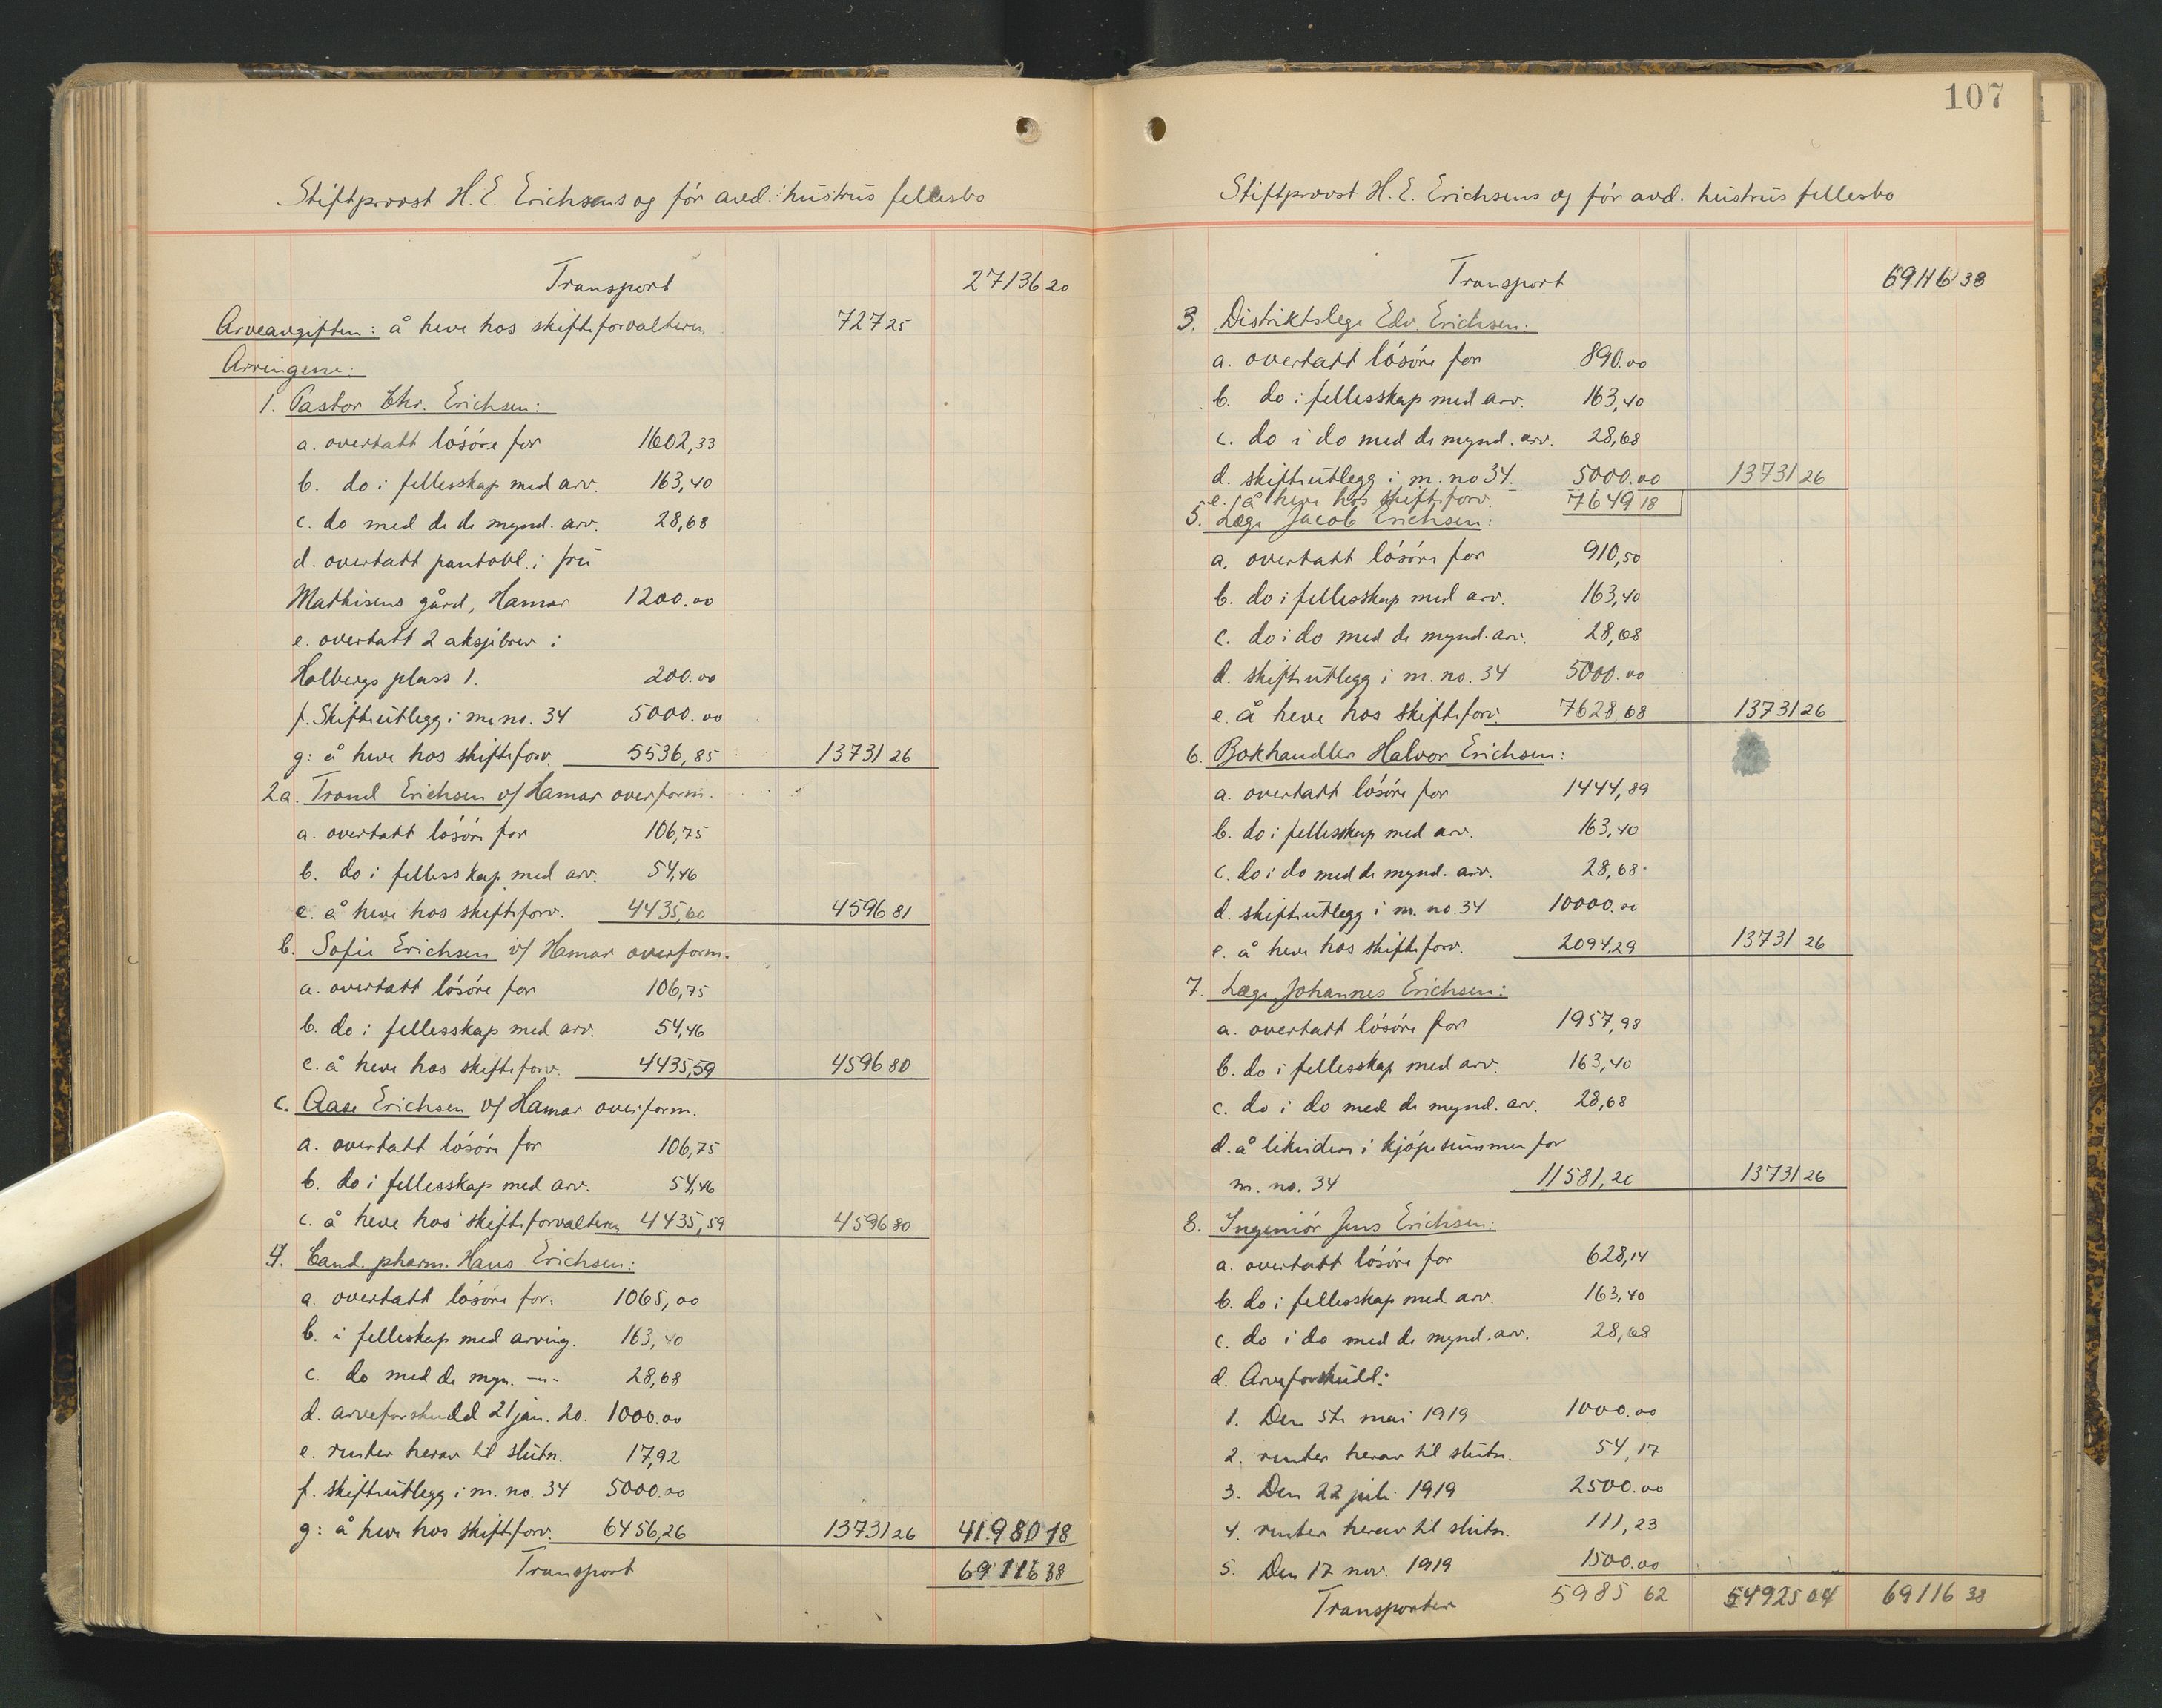 Stiftprovst H. E. Erichsens og før avd. hustrus fellesbo
Transport 27136 20
Arveavgiften: å heve hos skifteforvalteren 727 25
Arvingene:
1. Pastor Chr. Erichsen:
a. overtatt løsøre for 1602,33
b. do i fellesskap med arv. 163,40
c. do med de de mynd. arv. 28,68
d. overtatt pantobl. i fru
Mathisens gård, Hamar 1200.00
e. overtatt 2 aksjebrev i
Holbergs plass 1. 200.00
f. Skifteutlegg i m. no. 34 5000.00
g: å heve hos skifteforv. 5536,85 13731 26
2a. Trond Erichsen v/ Hamar overform.
a. overtatt løsøre for 106,75
b. do i fellesskap med arv. 54,46
c. å heve hos skifteforv. 4435,60 4596 81
b. Sofie Erichsen v/ Hamar overform.
a. overtatt løsøre for 106,75
b. do i fellesskap med arv. 54,46
c. å heve hos skifteforv. 4435,59 4596 80
c. Aase Erichsen v/ Hamar overform.
a. overtatt løsøre for 106,75
b. do i fellesskap med arv. 54,46
c. å heve hos skifteforvalteren 4435,59 4596 80
4. Cand. pharm. Hans Erichsen:
a. overtatt løsøre for: 1065,00
b. i felleskap med arving. 163,40
c. do med de myn. -"- 28,68
d. arveforskudd 21 jan. 20. 1000.00
e. renter herav til slutn. 17,92
f. skifteutlegg i m. no. 34 5000.00
g: å heve hos skifteforv. 6456,26 13731 26 41980 18
Transport 69116 38
107
Stiftprovst H. E. Erichsens og før avd. hustrus fellesbo
Transport 69116 38
3. Distriktslege Edv. Erichsen:
a. overtatt løsøre for 890.00
b. do i fellesskap med arv. 163,40
c. do i do med de mynd. arv. 28,68
d. skifteutlegg i m. no 34. 5000.00 13731 26
e. å heve hos skifteforv. 7649 18
5. Læge Jacob Erichsen:
a. overtatt løsøre for 910,50
b. do i fellesskap med arv. 163,40
c. do i do med de mynd. arv. 28,68
d. skifteutlegg i m. no. 34 5000.00
e. å heve hos skifteforv. 7628,68 13731 26
6. Bokhandler Halvor Erichsen:
a. overtatt løsøre for 1444,89
b. do i fellesskap med arv. 163,40
c. do i do med de mynd. arv. 28,68
d. skifteutlegg i m. no. 34 10000.00
e. å heve hos skifteforv. 2094,29 13731 26
7. Læge Johannes Erichsen:
a. overtatt løsøre for 1957,98
b. do i fellesskap med arv. 163,40
c. do i do med de mynd. arv. 28,68
d. å likvidere i kjøpesummen for
m. no. 34 11581,20 13731 26
8. Ingeniør Jens Erichsen:
a. overtatt løsøre for 628,14
b. do i fellesskap med arv. 163,40
c. do i do med de mynd. arv. 28,68
d. Arveforskudd:
1. Den 5te mai 1919 1000.00
2. renter herav til slutn. 54,17
3. Den 22 juli 1919 2500.00
4. renter herav til slutn. 111,23
5. Den 17 nov. 1919 1500.00
Transporter 5985 62 54925 04 69116 38